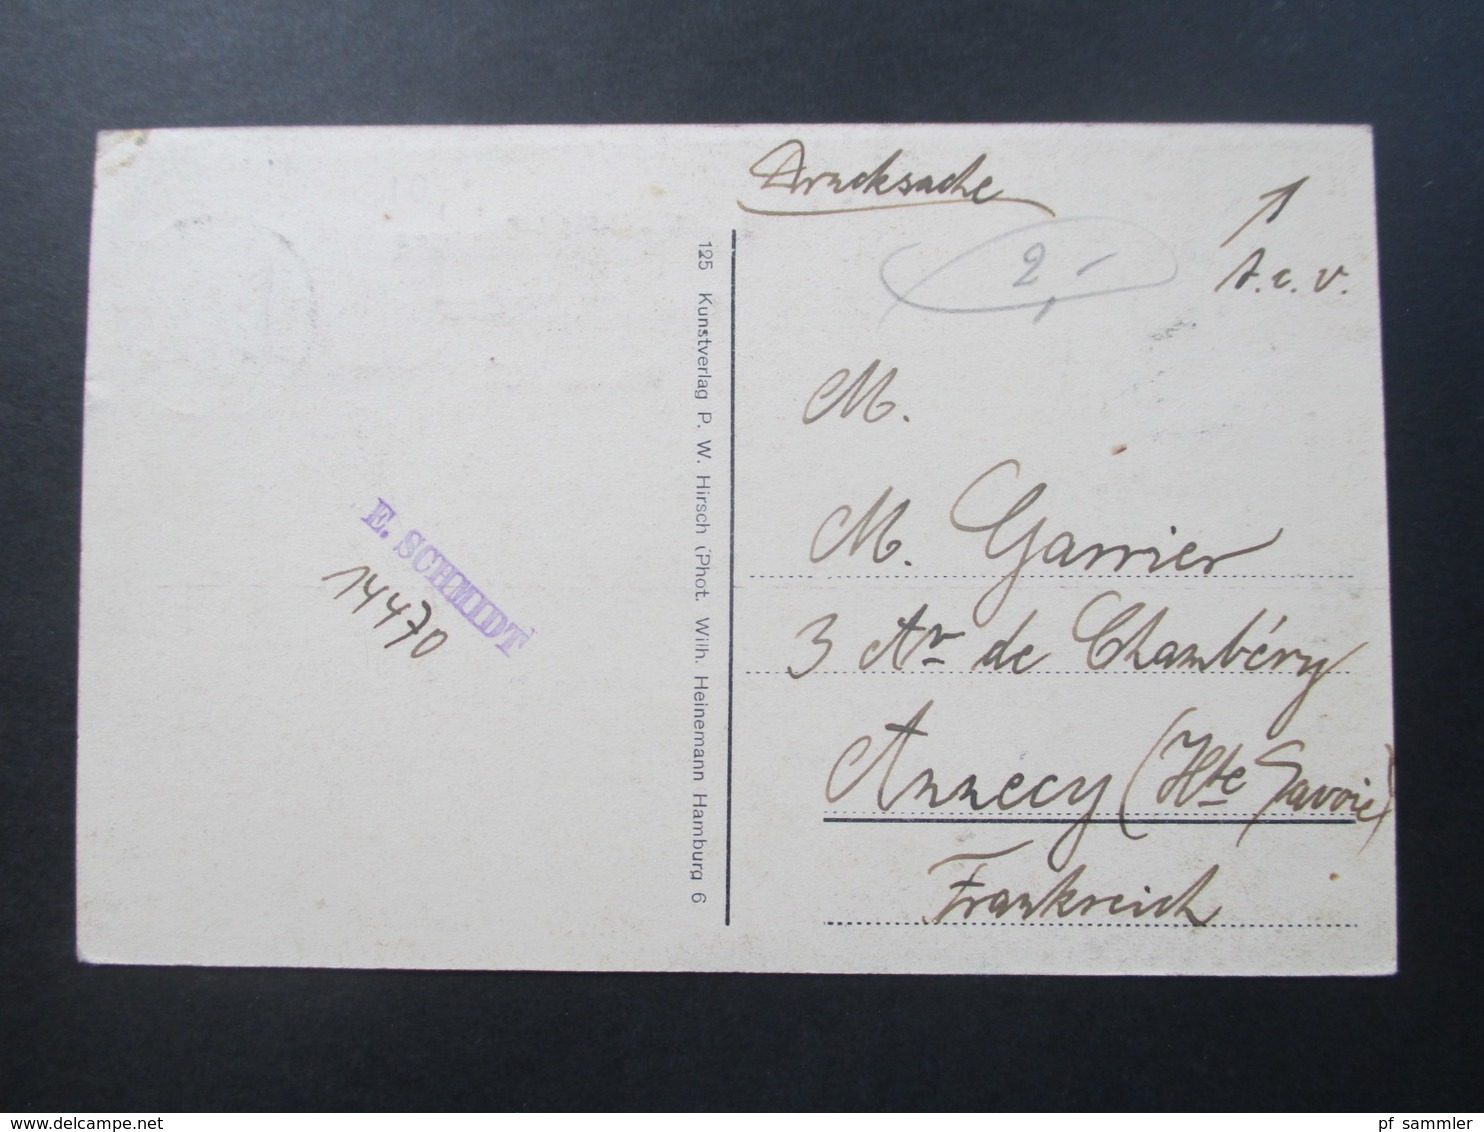 Drucksache
2,-
t.c.v.
M.
M. Garrier
3 Av de Chambéry
Annecy (Hte Savoie)
Frankreich
125 Kunstverlag P. W. Hirsch (Phot. Wilh. Heinemann Hamburg 6
E. SCHMIDT
14470
www.delcampe.net
pf_sammler